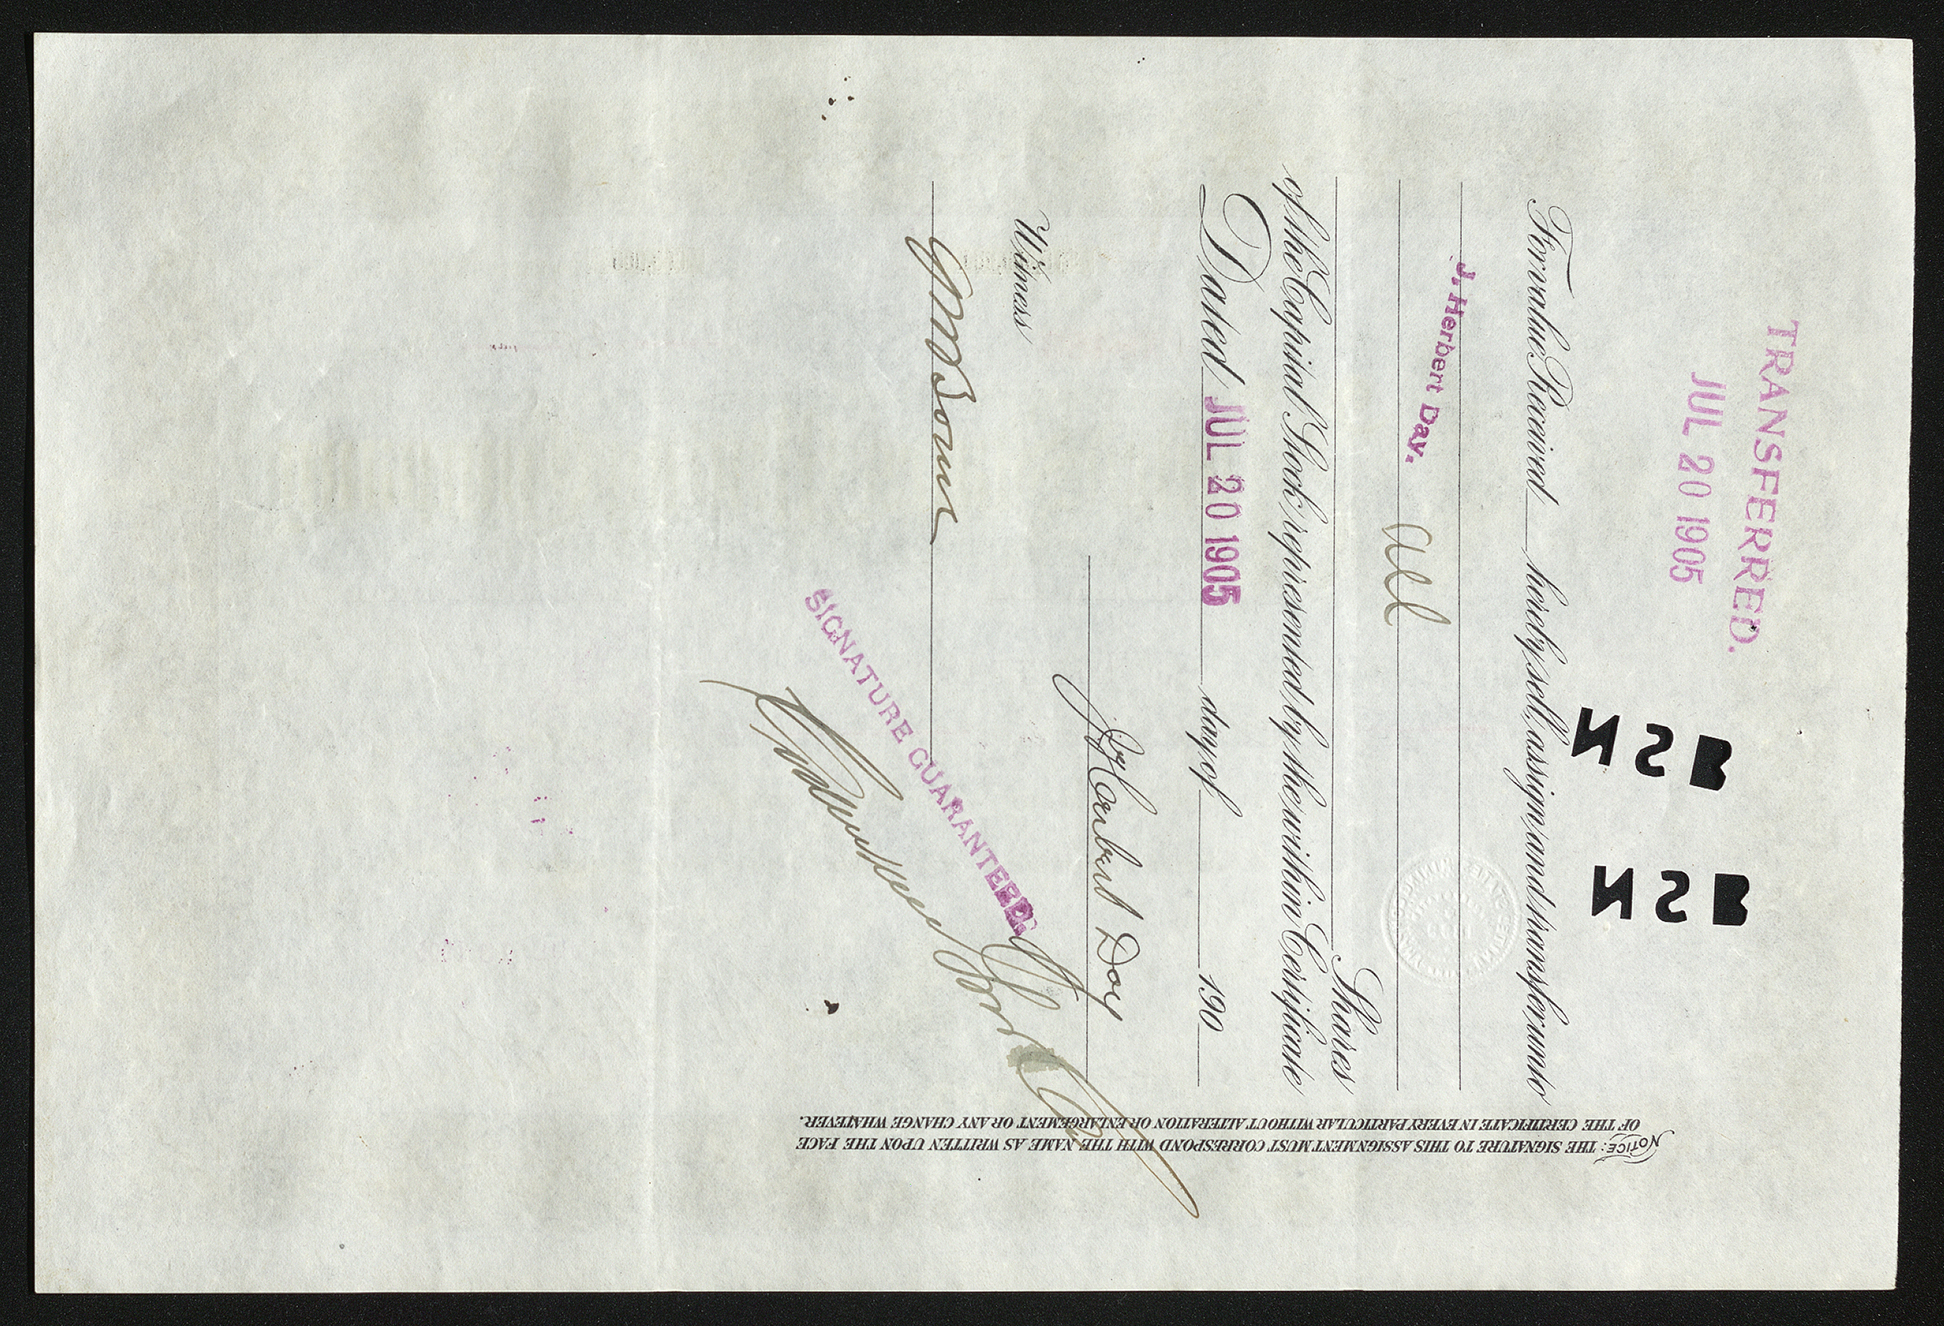 TRANSFERRED.
JUL 20 1905
NSB NSB
For value Received hereby sell, assign, and transfer, unto
J. Herbert Day.
all
Shares
of the Capital Stock, represented by the within Certificate
Dated JUL 20 1905 day of 190
J Herbert Day
Witness
SIGNATURE GUARANTEED
NOTICE: THE SIGNATURE TO THIS ASSIGNMENT MUST CORRESPOND WITH THE NAME AS WRITTEN UPON THE FACE
OF THE CERTIFICATE IN EVERY PARTICULAR WITHOUT ALTERATION OR ENLARGEMENT OR ANY CHANGE WHATEVER.